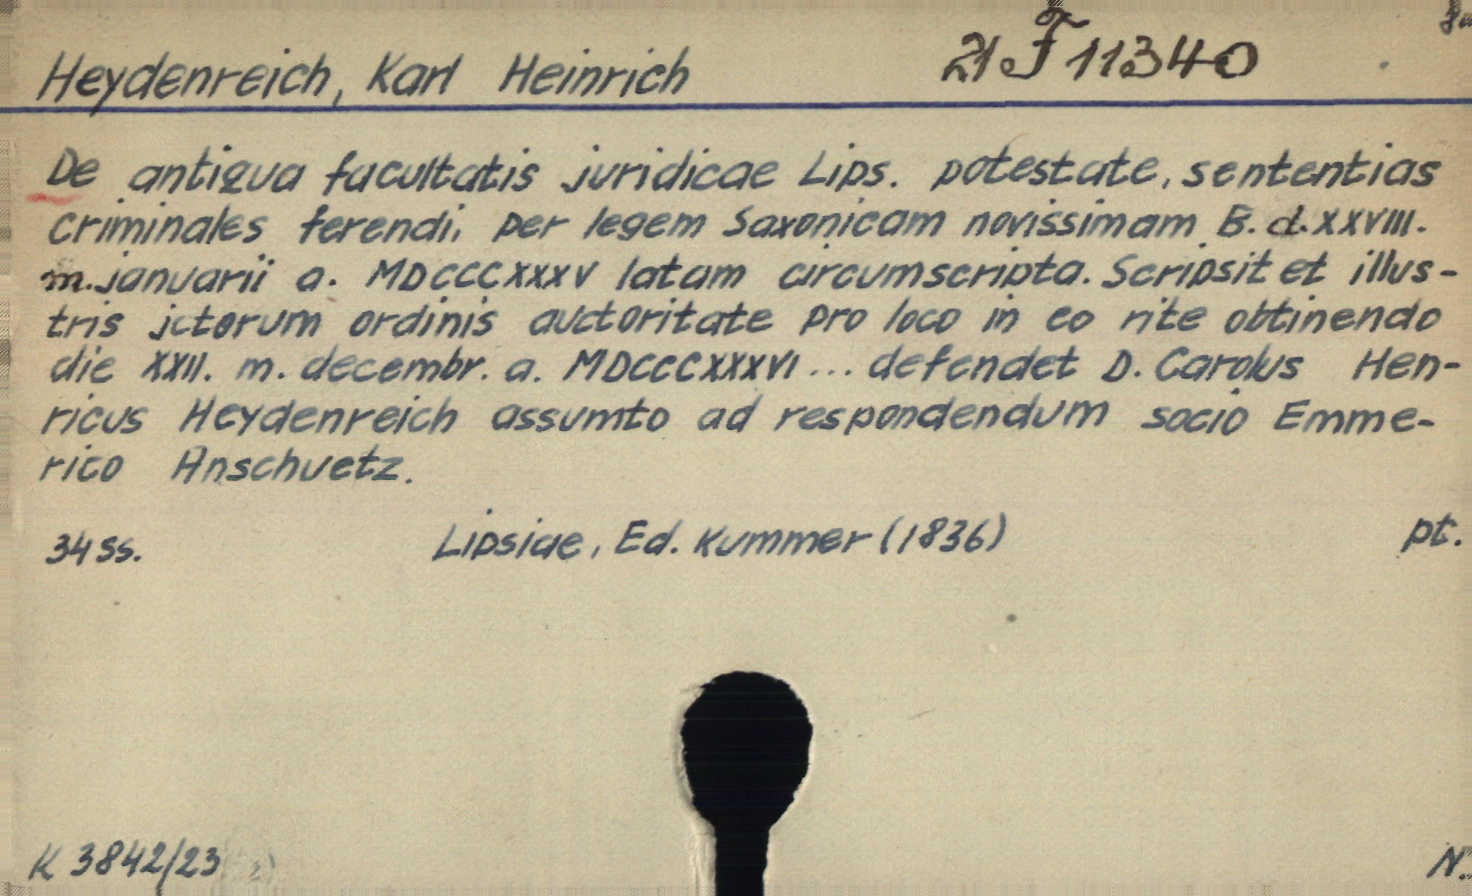 Heydenreich, Karl Heinrich 21 F 11340
De antiqua facultatis juridicae Lips. potestate, sententias
criminales ferendi, per legem Saxonicam novissimam B. d. XXVIII.
m. januarii a. MDCCCXXXV latam circumscripta. Scripsit et illus-
tris jctorum ordinis auctoritate pro loco in eo rite obtinendo
die XXII. m. decembr. a. MDCCCXXXVI... defendet D. Carolus Hen-
ricus Heydenreich assumto ad respondendum socio Emme-
rico Anschuetz.
34 ss. Lipsiae, Ed. Kummer (1836) pt.
K 3842/23 N.